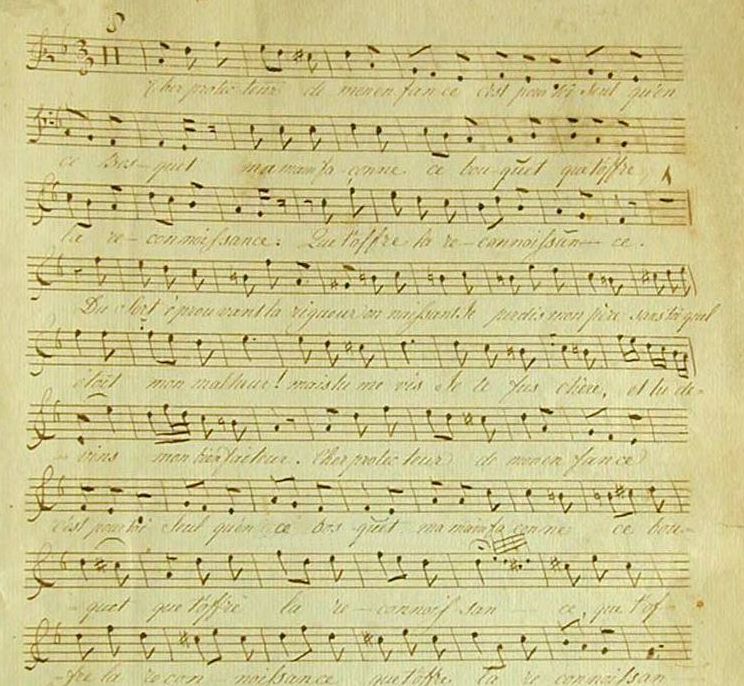 Cher protecteur de mon enfance c'est pour toi seul qu'en
ce Bos-quet ma main fa çonne ce bou-quet que t'offre
la re-connoissance. Que t'offre la re-connoissan-ce.
Du Sort é prouvant la rigueur en naissant Je perdis mon père sans toi quel
étoit mon malheur! mais tu me vis Je te fus chère, et tu de-
vins mon bienfaiteur. Cher protec teur de mon en fance
c'est pour toi Seul qu'en ce Bos-quet ma main fa çonne ce bou-
-quet que t'offre la re-connoif san ce, que t'of-
-fre la recon noissance que t'offre la re connoissan